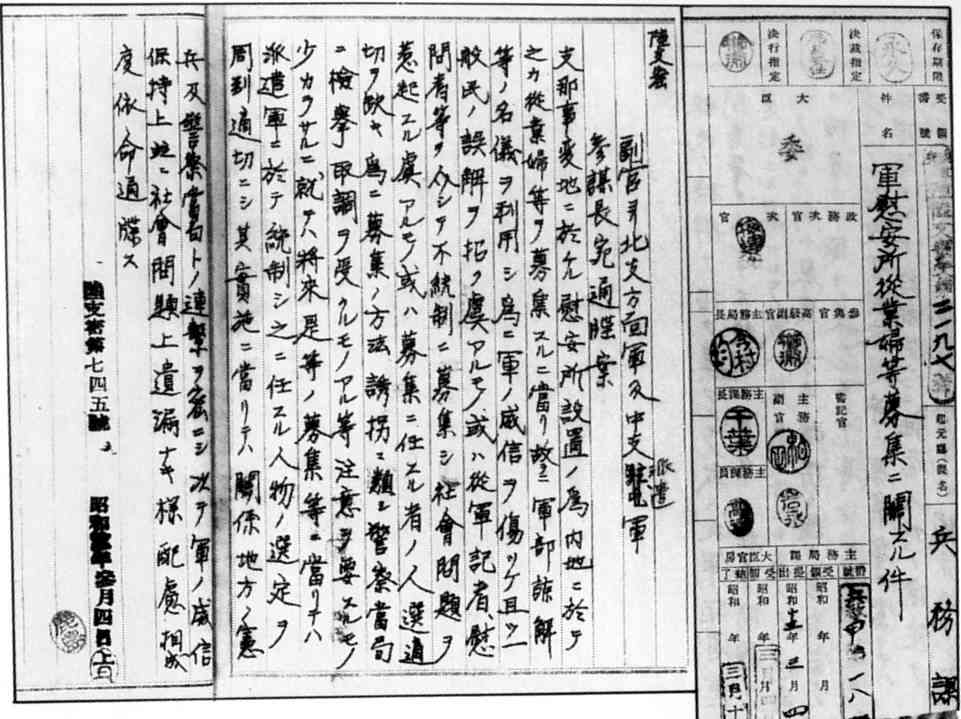 保存期限
決裁指定
決行指定
永久
受領番號
件名
軍慰安所從業婦等募集ニ關スル件
起元廳(課名)
兵務課
大臣
委
政務次官
次官
參與官
高級副官
主務局長
主務課長
主務副官
書記官
主務課員
今村
千葉
大臣官房
主務局課
昭和 年 月
陸支密
副官ヨリ北支方面軍及中支派遣軍
參謀長宛通牒案
支那事變地ニ於ケル慰安所設置ノ爲內地ニ於テ
之カ從業婦等ヲ募集スルニ當リ故ラニ軍部諒解
等ノ名儀ヲ利用シ爲ニ軍ノ威信ヲ傷ツケ且ツ一
般民ノ誤解ヲ招ク虞アルモノ或ハ從軍記者、慰
問者等ヲ介シテ不統制ニ募集シ社會問題ヲ
惹起スル虞アルモノ或ハ募集ニ任スル者ノ人選適
切ヲ缺キ爲ニ募集ノ方法誘拐ニ類シ警察當局
ニ檢擧取調ヲ受クルモノアル等注意ヲ要スルモノ
少カラサルニ就テハ將來是等ノ募集等ニ當リテハ
派遣軍ニ於テ統制シ之ニ任スル人物ノ選定ヲ
周到適切ニシ其實施ニ當リテハ關係地方ノ憲
兵及警察當局トノ連繫ヲ密ニシ次テ軍ノ威信
保持上竝ニ社會問題上遺漏ナキ樣配慮相成
度依命通牒ス
陸支密第七四五號
昭和拾參年參月四日